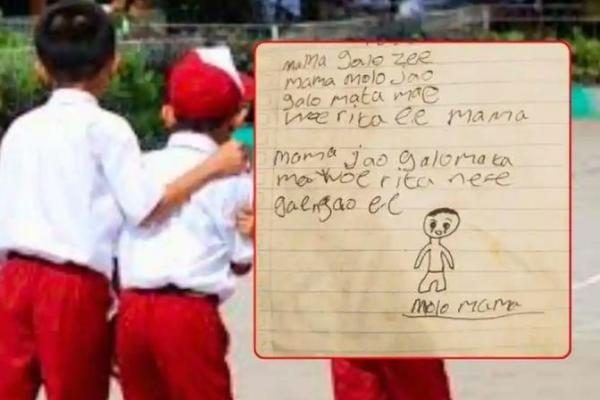 mama galo zee
mama molo Jao
galo mata mae
woe rita ee mama
mama jao galo mata
mae woe rita nee
gae ngao ee
molo mama